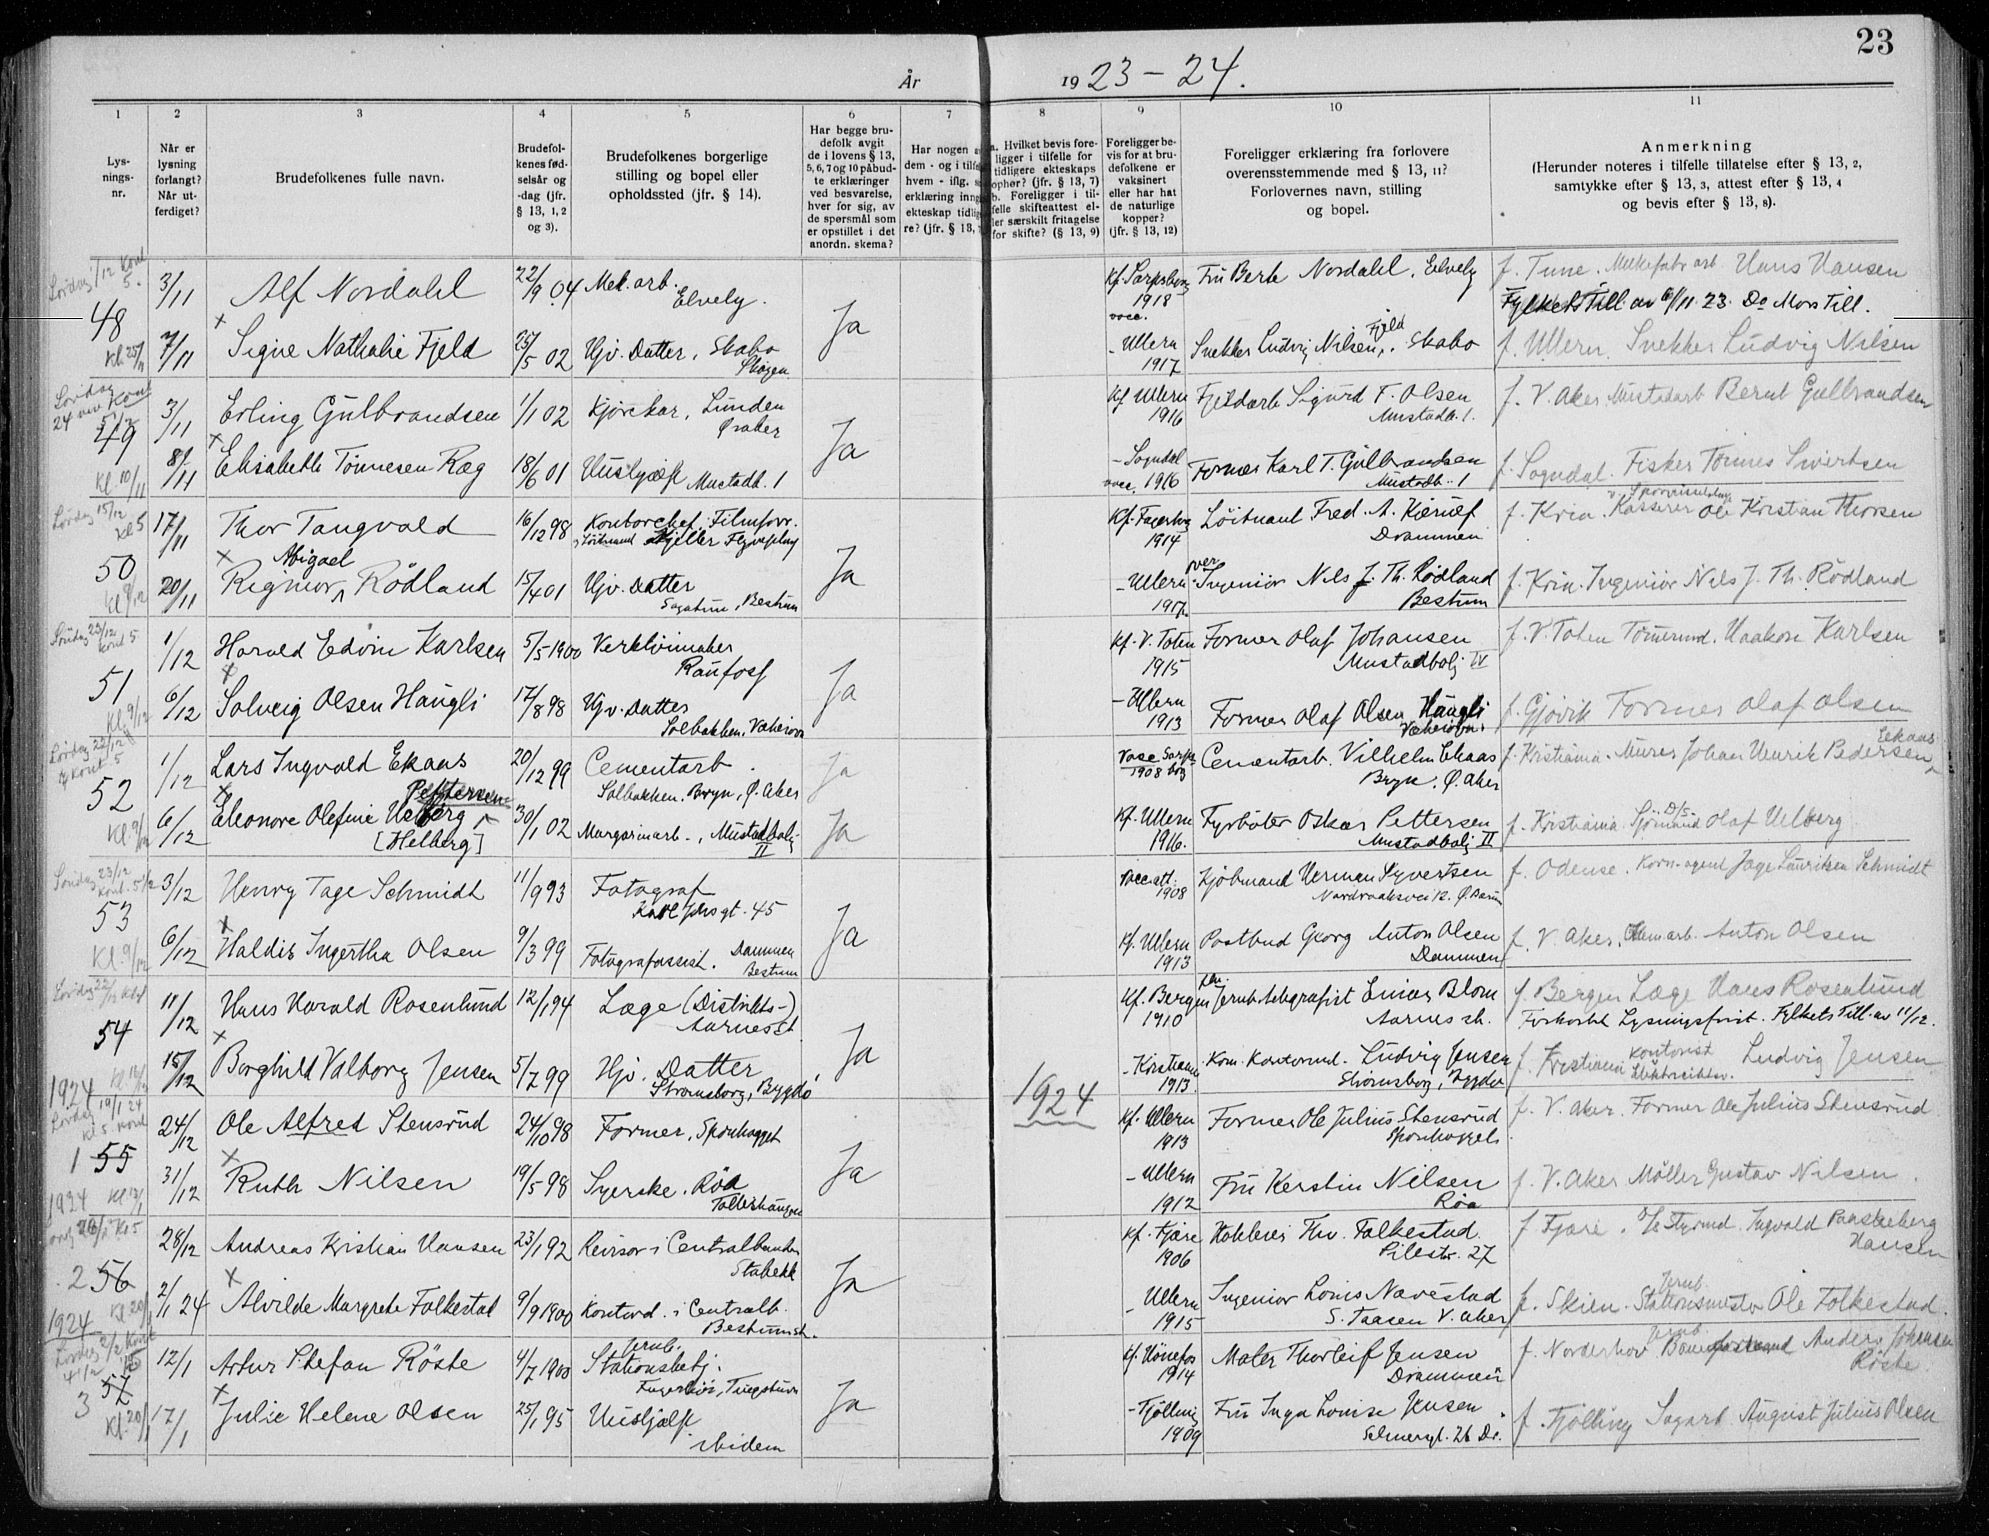 23
År 1923-24.
1
2
3
4
5
6
7
8
9
10
11
Lys-
nings-
nr.
Når er
lysning
forlangt?
Når ut-
ferdiget?
Brudefolkenes fulle navn.
Brudefol-
kenes fød-
selsår og
-dag (jfr.
§ 13, 1, 2
og 3).
Brudefolkenes borgerlige
stilling og bopel eller
opholdssted (jfr. § 14).
Har begge bru-
defolk avgit
de i lovens § 13,
5, 6, 7 og 10 påbud-
te erklæringer
ved besvarelse,
hver for sig, av
de spørsmål som
er opstillet i det
anordn. skema?
Har nogen a
dem - og i tilfel
hvem - iflg.
erklæring inng
ekteskap tidlig
re? (jfr. § 13,
a. Hvilket bevis fore-
ligger i tilfelle for
tidligere ekteskaps
ophør? (jfr. § 13, 7)
b. Foreligger i til-
felle skifteattest el-
ler særskilt fritagelse
for skifte? (§ 13, 9)
Foreligger be-
vis for at bru-
defolkene er
vaksinert
eller har hat
de naturlige
kopper?
(jfr. § 13, 12)
Foreligger erklæring fra forlovere
overensstemmende med § 13, 11?
Forlovernes navn, stilling
og bopel.
Anmerkning
(Herunder noteres i tilfelle tillatelse efter § 13, 2,
samtykke efter § 13, 3, attest efter § 13, 4
og bevis efter § 13, 8).
Lørdag 1/12 Kont
5.
48
3/11 Alf Nordahl 22/9.04 Mek. arb. Elvely. Ja Kf. Sarpsborg 1918 vacc. Fru Berte Nordahl, Elvely f. Tune. Hans Hansen
Fylkets Till. av 6/11 23. Do Mors Till.
Kl 25/11 7/11 x Signe Nathalie Fjeld 25/5 02 Hjv. Datter, Skabo Skogen - Ullern 1917 Snekker Ludvig Nilsen Fjeld, Skabo f. Ullern. Snekker Ludvig Nilsen
Lørdag
24 nov Kont
49
3/11 Erling Gulbrandsen 1/1 02 Kjørekar, Lunden Ø. Aker Ja Kf Ullern 1916 Sigurd F. Olsen Mustadb. 1. f. V. Aker Mustadarb Bernt Gulbrandsen
Kl 10/11 8/11 x Elisabeth Tönnesen Ræg 18/6 01 Hushjælp Mustadb. 1 - Sogndal vacc. 1916 Former Karl T. Gulbrandsen Mustadb. 1 f. Sogndal. Fisker Tönnes Sivertsen
Lørdag 15/12
Kl 5
50
17/11 Thor Tangvald 16/12 98 Kontorchef, Filmforr. Løitnant Kjeller Flyveplass Ja Kf. Fagerborg 1914 Løitnant Fred. A. Kierulf Drammen f. Kria. Kasserer Ole Kristian Thorsen
Kl 9/12 20/11 x Rigmor Abigael Rödland 15/4 01 Hjv. Datter Sagatun, Bestum - Ullern 1917 over Ingeniör Nils J. Th. Rödland Bestum f. Kria. Ingeniör Nils J. Th. Rödland
Søndag 23/12
Kont 5
51
1/12 Harald Edvin Karlsen 5/5 1900 Verktöimaker Raufoss Ja Kf. V. Toten 1915 Former Olaf Johansen Mustadbolj IV f. V. Toten Tömmermd. Haakon Karlsen
Kl. 9/12 6/12 x Solveig Olsen Haugli 17/8 98 Hjv. Datter Solbakken, Vækerö - Ullern 1913 Former Olaf Olsen Haugli Vækerö f. Gjövik Former Olaf Olsen
Lørdag 22/12
Kont 5
52
1/12 Lars Ingvald Ekaas 20/12 99 Cementarb. Solbakken. Bryn, Ø. Aker Ja Vacc Sarpsborg 1908 Cementarb. Vilhelm Ekaas Bryn, Ø. Aker f. Kristiania. Murer Johan Henrik Pedersen Eekaas
Kl. 9/12 6/12 x Eleonore Olefine Helberg Pettersen [Helberg] 30/1 02 Margarinarb., Mustadbolj II Ja Kf. Ullern 1916. Fyrböter Oskar Pettersen Mustadbolj II f. Kristiania Sjömand Olaf Helberg
Søndag 23/12
Kont. 5 1/2
53
3/12 Henry Tage Schmidt 11/9 93 Fotograf Karl Johsgt. 45 Ja Vacc att. 1908 Kjöbmand Herman Syvertsen f. Odense. Korn-agent Jage Lauritsen Schmidt
Kl. 9/12 6/12 x Haldis Ingertha Olsen 9/3 99 Fotografassist. Dammen Bestum Kf. Ullern 1913 Postbud Georg Anton Olsen Dammen f. V. Aker. Anton Olsen
Lørdag 22/12
54
11/12 Hans Harald Rosenlund 12/1 94 Læge (Distrikts-) Aarnes st. Ja Kf. Bergen 1910 Jernb.telegrafist Einar Blom Aarnes st. f. Bergen Læge Hans Rosenlund
Forkortet Lysningsfrist. Fylkets Till. av 11/12.
15/12 x Borghild Valborg Jensen 5/7 99 Hjv. Datter Strömsborg, Bygdö - Kristiania 1913 Kom. Kontormd. Ludvig Jensen Strömsborg, Bygdö f. Kristiania Kontorist Ludvig Jensen
1924
1924
Lørdag 19/1 24
Kl 5 Kont
1 55
24/12 Ole Alfred Stensrud 24/10 98 Former, Sponhugget Ja Kf. Ullern 1913 Former Ole Julius Stensrud f. V. Aker. Former Ole Julius Stensrud
31/12 x Ruth Nilsen 19/5 98 Syerske. Röa - Ullern 1912 Fru Kerstin Nilsen Röa f. V. Aker Möller Gustav Nilsen.
1924
2 56
28/12 Andreas Kristian Hansen 23/1 92 Revisor i Centralbanken Stabekk Ja Kf. Fjære 1906 Thv. Falkestad Pilestr. 27 f. Fjære. Ingvald Hansen
Kl 20/1 2/1 24 x Alvilde Margrete Falkestad 9/9 1900 Kontord. i Centralb. Bestum st. - Ullern 1915 Ingeniör Louis Nævestad S. Taasen V. Aker f. Skien. Jernb. Stationsmester Ole Falkestad.
1924
Lördag 2/2 Kont
4 1/2
3 57
12/1 Artur Stefan Röste 4/7 1900 Jernb. Stationsbetj. Ja Kf Hönefos 1914 Maler Thorleif Jensen Drammen f. Norderhov Jernb. Anders Johansen Röste.
Kl. 20/1 17/1 x Julie Helene Olsen 25/1 95 Hushjælp ibidem - Tjölling 1909 Fru Inga Louise Jensen Selmersgt. 26 Dr. f. Tjölling Sagarb. August Julius Olsen